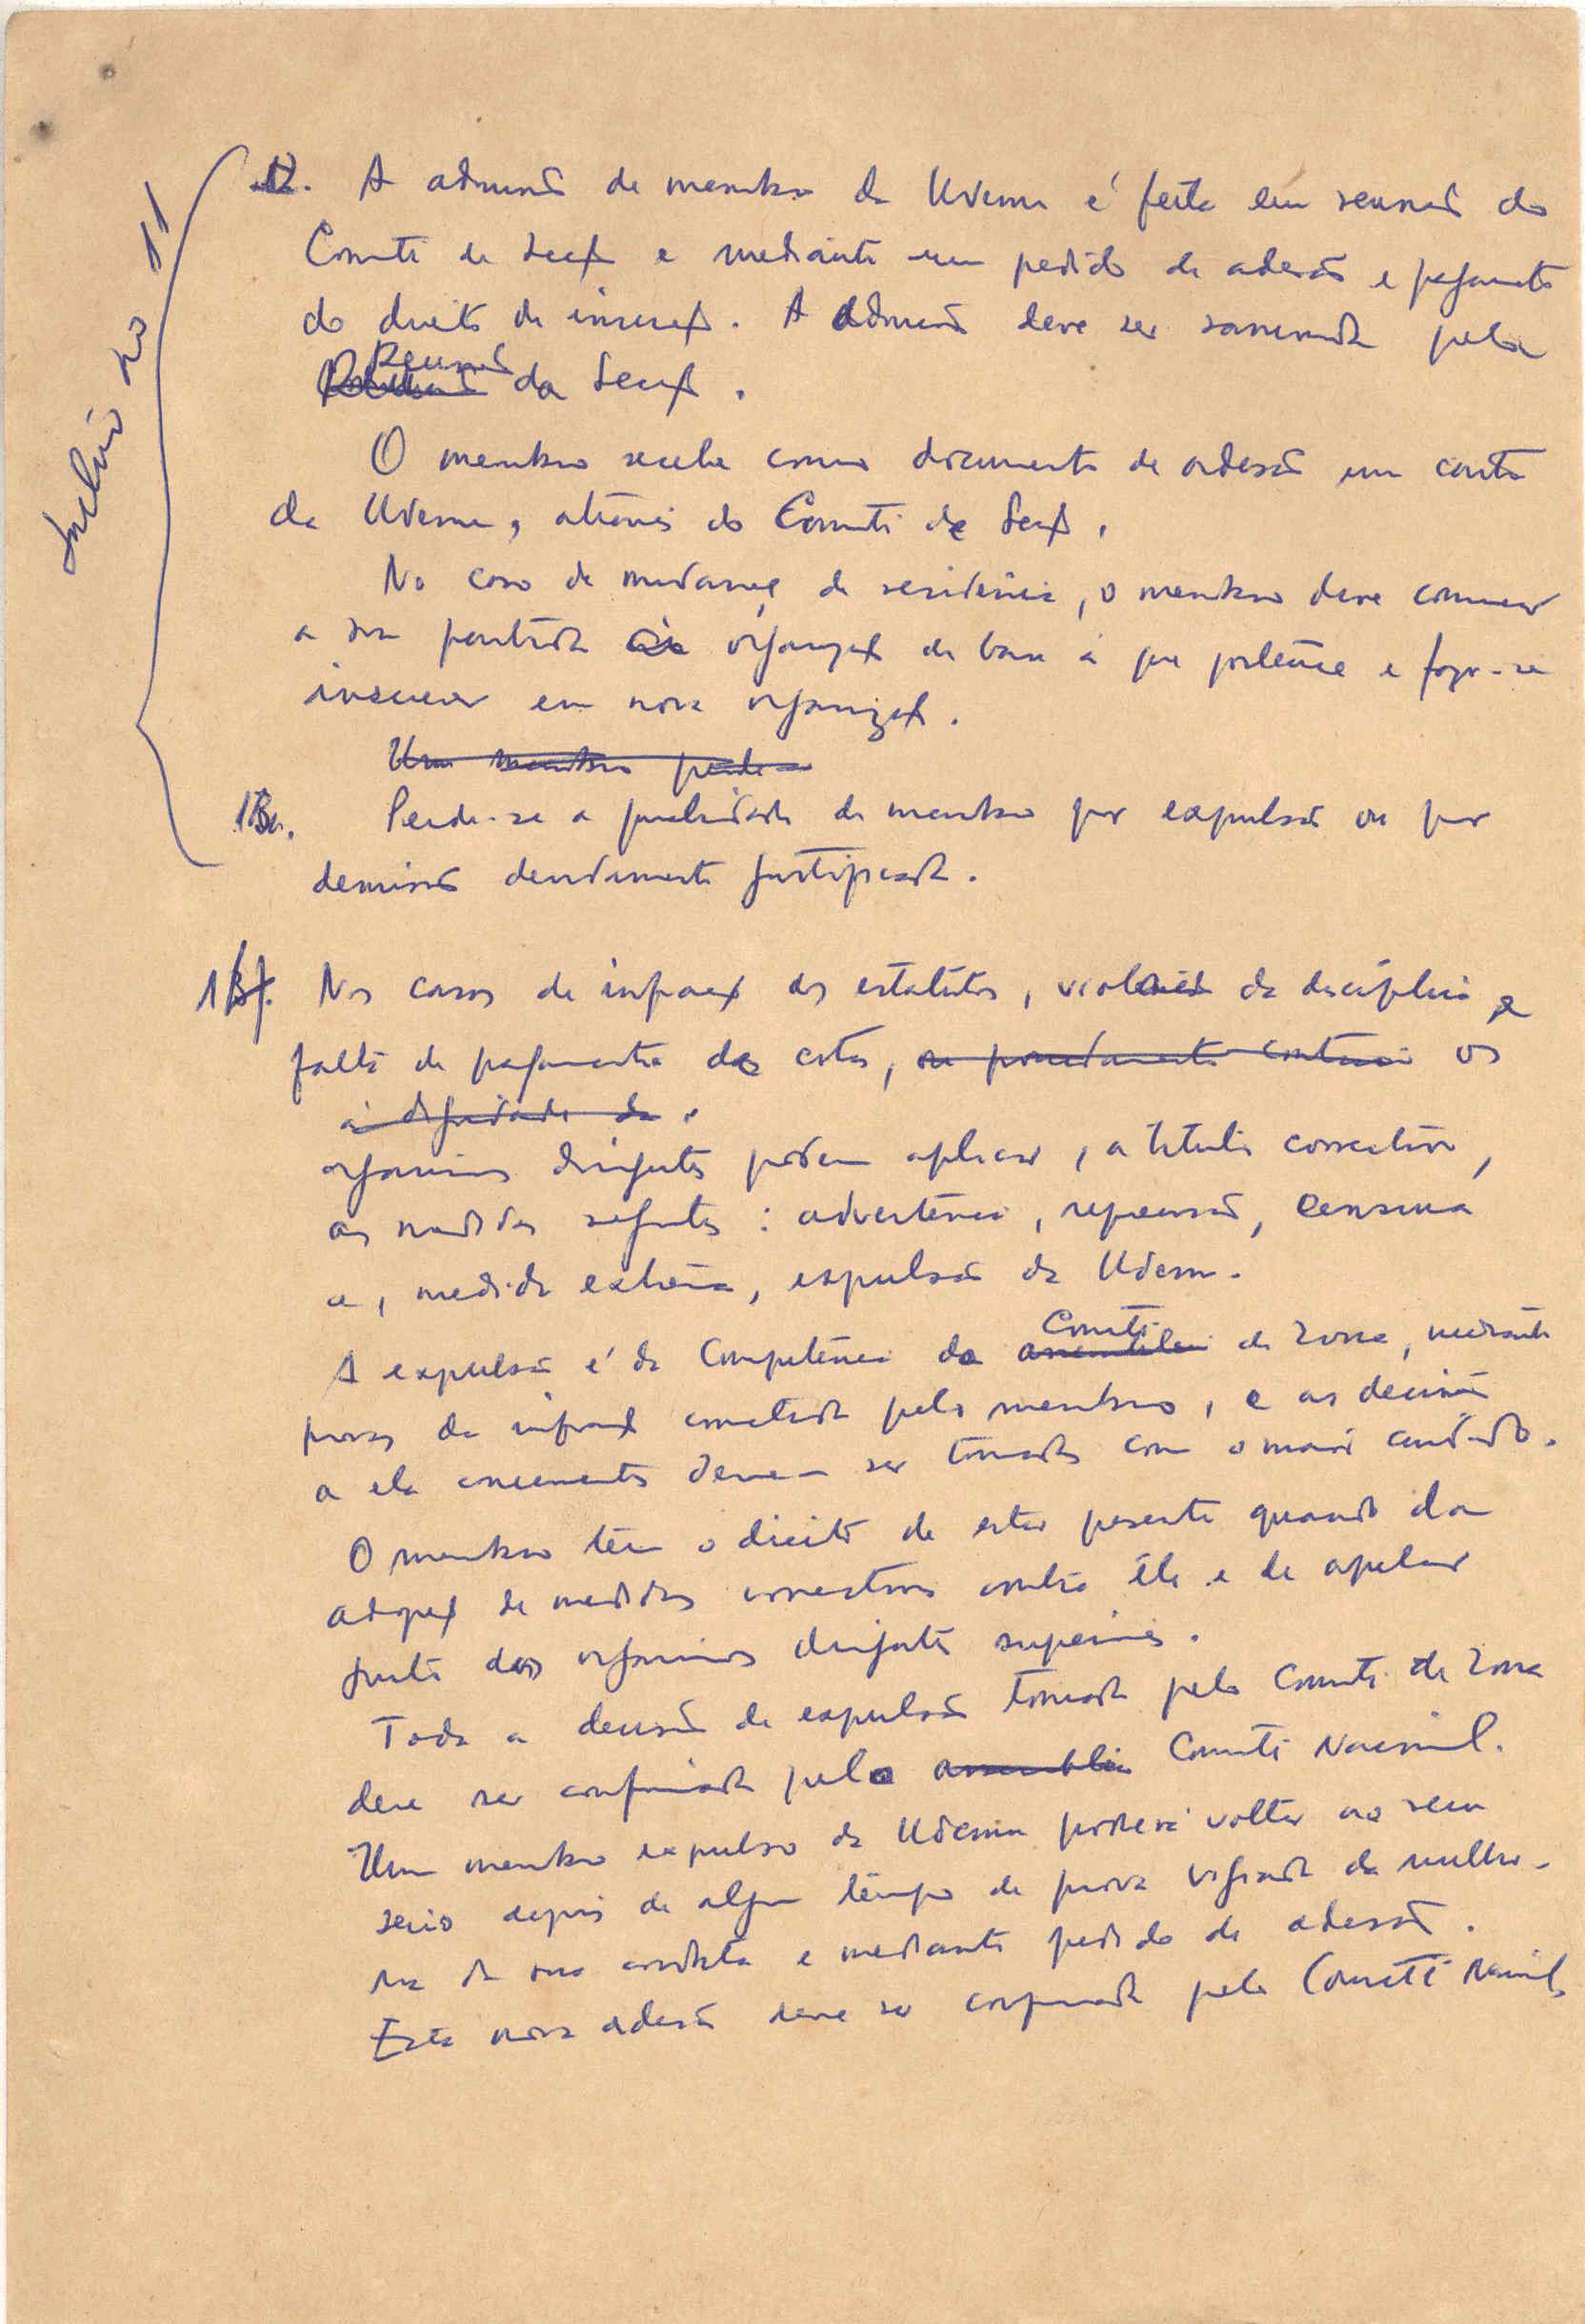 Incluir no 11
12. A admissão de membro da Udemu é feita em reunião do
Comité de Secç e mediante um pedido de adesão e pagamento
do direito de inscriç. A admissão deve ser sancionada pela
Reunião da Secç.
O membro recebe como documento de adesão um cartão
da Udemu, através do Comité de Secç.
No caso de mudança de residência, o membro deve comunicar
a sua partida à organizaç de base a que pertence e fazer-se
inscrever em nova organizaç.
Um membro perde
13. Perde-se a qualidade de membro por expulsão ou por
demissão devidamente justificada.
Nos casos de infracç dos estatutos, violação da disciplina e
falta de pagamento das cotas, ou procedimento contrário os
à dignidade da
organismos dirigentes podem aplicar, a título correctivo,
as medidas seguintes: advertência, repreensão, censura
e, medida extrema, expulsão da Udemu.
A expulsão é da competência do Comité de Zona, mediante
provas da infracç cometida pelo membro, e as decisões
a ela concernentes devem ser tomadas com o maior cuidado.
O membro tem o direito de estar presente quando da
adopç de medidas correctivas contra êle e de apelar
junto dos organismos dirigentes superiores.
Toda a decisão de expulsão tomada pelo Comité de Zona
deve ser confirmada pelo assembleia Comité Nacional.
Um membro expulso da Udemu poderá voltar ao seu
seio depois de algum tempo de prova vigiada da melho-
ria da sua conduta e mediante pedido de adesão.
Esta nova adesão deve ser confirmada pelo Comité Nacional